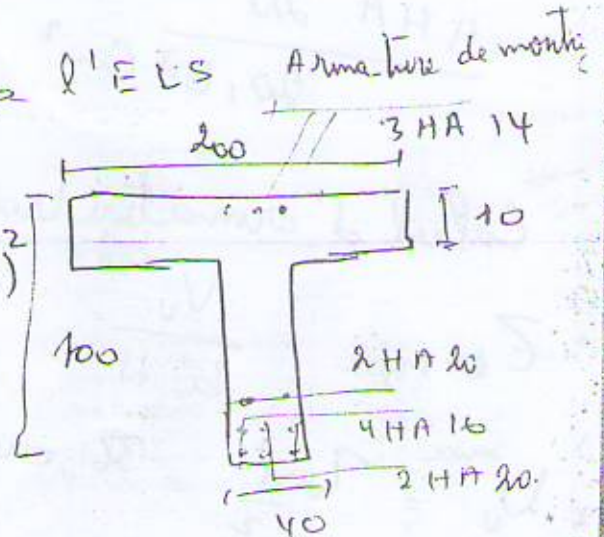 l'ELS
Armature de monta
3 HA 14
200
10
2
)
100
2 HA 20
4 HA 16
2 HA 20.
40